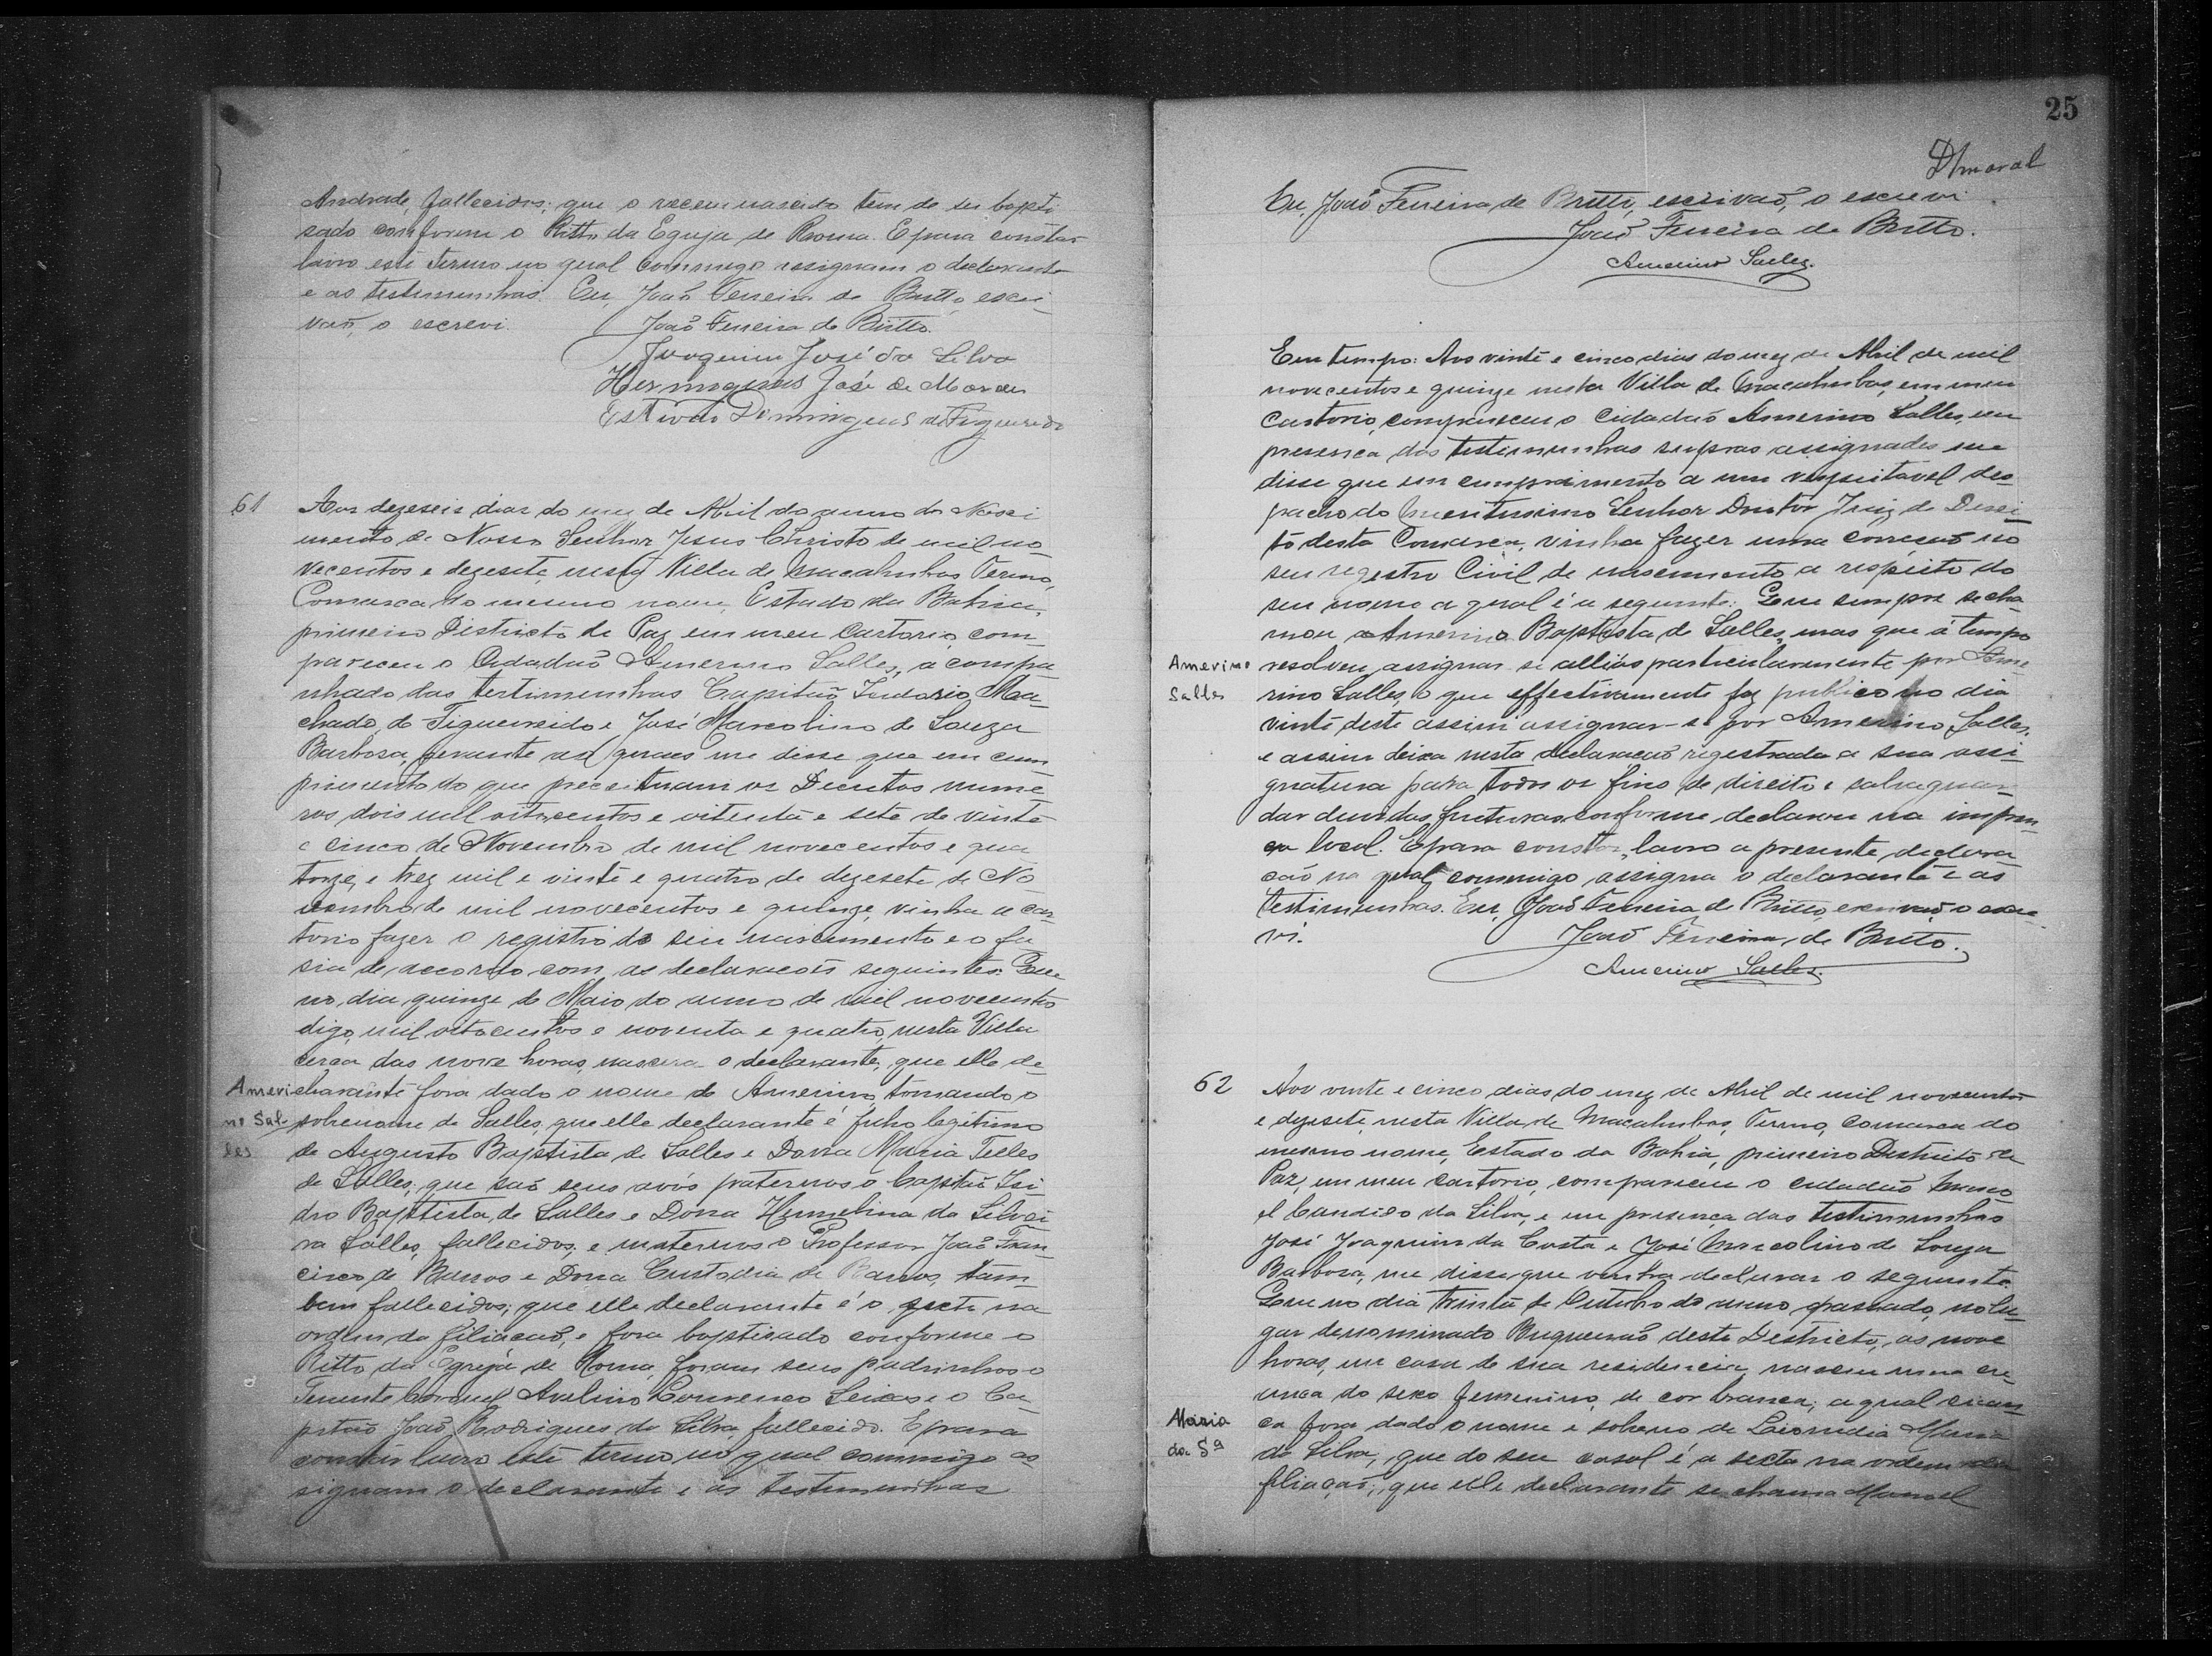 Andrade, fallecidos; que o recem nascido tem de ser bapti
sado conforme o Ritto da Egreja de Roma. E para constar
lavro este termo no qual commigo assignam o declarante
e as testemunhas. Eu, João Ferreira de Britto, escri
vaõ, o escrevi.
João Ferreira de Britto.
Joaquim José da Silva
José de
Domingues de Figueredo
61
Aos dezeseis dias do mez de Abril do anno do Nasci
mento de Nosso Senhor Jesus Christo de mil no
vecentos e dezesete, nesta Villa de Macahubas, Termo,
Comarca do mesmo nome, Estado da Bahia,
primeiro Districto de Paz, em meu cartorio, com
pareceu o Cidadaõ Amerino Salles, acompa
nhado das testimunhas Capitaõ Ma
chado de Figueireido e José Marcolino de Souza
Barbosa, perante as quaes me disse que em cum
primento do que preceituam os Decretos nume
ros dois mil oitocentos e oitenta e sete de vinte
e cinco de Novembro de mil novecentos e qua
torze, e trez mil e vinte e quatro de dezesete de No
vembro de mil novecentos e quinze, vinha a car
torio fazer o registro de seu nascimento e o fa
sia de accordo com as declaracoẽs seguintes: Que
no dia quinze de Maio do anno de mil novecentos
digo, mil oitocentos e noventa e quatro, nesta Villa
cerca das nove horas, nascera o declarante; que elle de
Ameri
clarante fora dado o nome de Amerino, tomando o
no Sal
sobrenome de Salles, que elle declarante é filho legitimo
les
de Augusto Baptista de Salles e Dona Maria Telles
de Salles; que saõ seus avós paternos o Capitaõ Isi
dro Baptista de Salles e Dona Hermelina da Silvei
ra Salles, fallecidos; e maternos o Professor João Fran
cisco de Barros e Dona Custodia de Barros, tam
bem fallecidos; que elle declarante é o na
ordem da filiacaõ, e fora baptisado conforme o
Ritto da Egreja de Roma, foram seus padrinhos o
Tenente Coronel Avelino Lourenco Seixas e o Ca
pitaõ João Rodrigues da Silva, fallecido. E para
constar lavro este termo no qual commigo as
signam o declarante e as testemunhas
25
DAmaral
Eu, João Ferreira de Britto, escrivaõ, o escrevi.
João Ferreira de Britto.
Amerino Salles.
Em tempo: Aos vinte e cinco dias do mez de Abril de mil
novecentos e quinze nesta Villa de Macahubas, em meu
Cartorio, compareceu o Cidadaõ Amerino Salles, em
presença das testemunhas supras assignadas me
disse que em cumprimento a um respeitavel des
pacho do Meritissimo Senhor Doutor Juiz de Direi
to desta Comarca, vinha fazer uma correcaõ no
seu registro Civil de nascimento a respeito do
seu nome a qual é a seguinte: Que sempre se cha
mou Amerino Baptista de Salles, mas que á tempo
Amerino
resolveu assignar-se alliás particularmente por Ame
Salles
rino Salles, o que effectivamente fez publico no dia
vinte deste assim assignar-se por Amerino Salles,
e assim deixa nesta declaracaõ registrada a sua assi
gnatura para todos os fins de direito e salvaguar
dar duvidas futuras conforme declarou na impren
ça local. E para constar, lavro a presente declara
caõ na qual commigo assigna o declarante e as
testimunhas. Eu, João Ferreira de Britto, escrivaõ o escre
vi.
João Ferreira de Britto.
Amerino Salles.
62
Aos vinte e cinco dias do mez de Abril de mil novecentos
e dezesete, nesta Villa de Macahubas, Termo, Comarca do
mesmo nome, Estado da Bahia, primeiro Districto de
Paz, em meu cartorio, compareceu o cidadaõ Mano
el Candido da Silva, e em presença das testimunhas
José Joaquim da Costa e José Marcolino de Souza
Barbosa, me disse que vinha declarar o seguinte:
Que no dia trinta de Outubro do anno passado, no lu
gar denominado Buqueiraõ deste Districto, as nove
horas, em casa de sua residencia, nasceu uma cri
ança do sexo femenino, de cor branca; a qual crian
Maria
ca fora dado o nome e sobreno de Leonidia Maria
da Sª
da Silva, que do seu casal é a sexta na ordem da
filiaçaõ; que elle declarante se chama Manoel